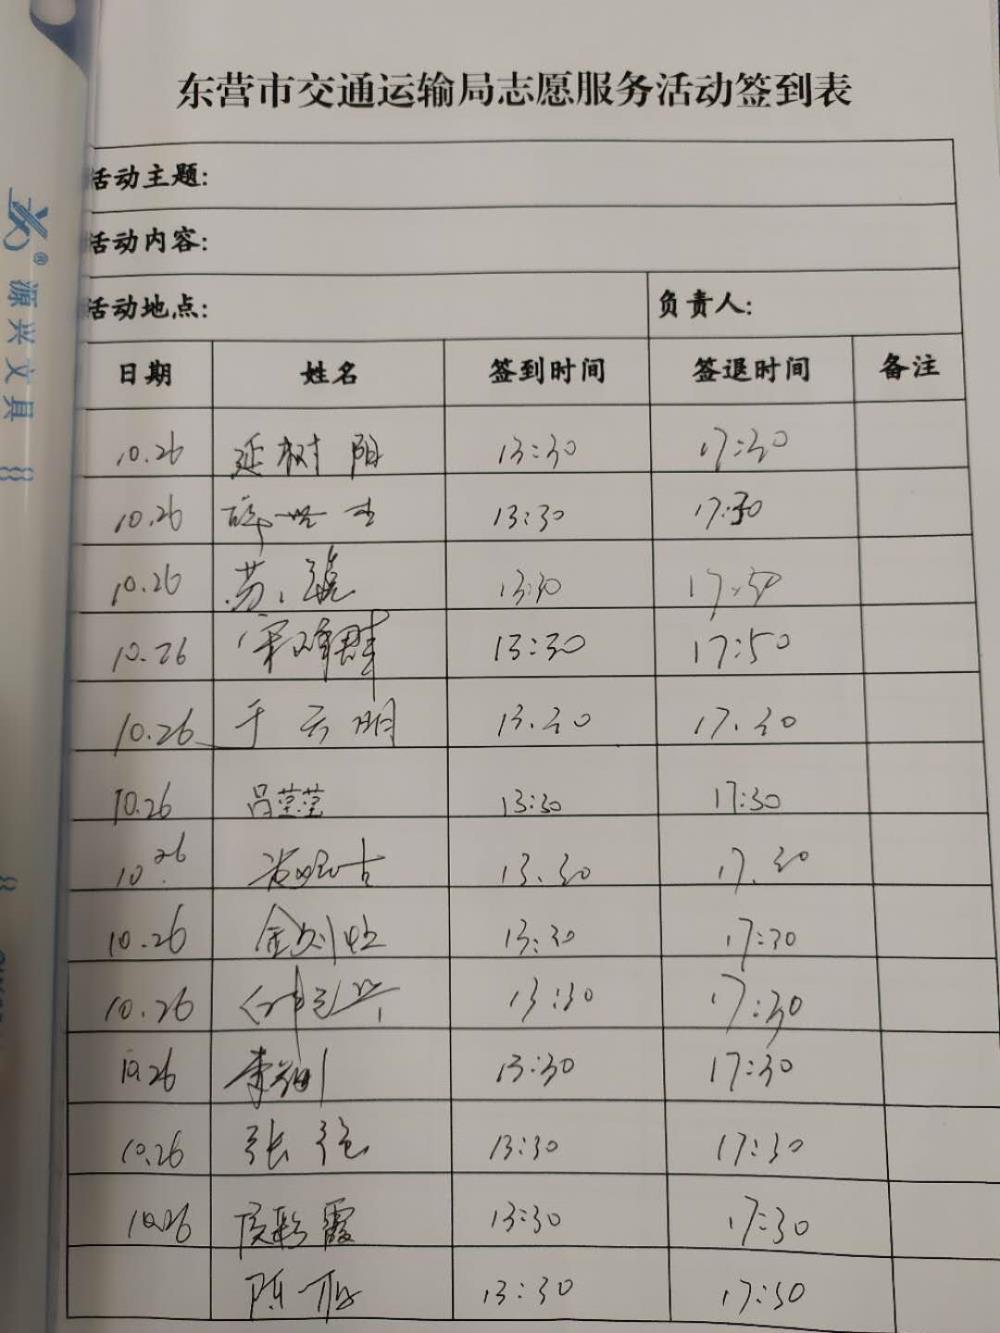 东营市交通运输局志愿服务活动签到表
活动主题:
活动内容:
活动地点: 负责人:
日期 姓名 签到时间 签退时间 备注
10.26 延树阳 13:30 17:30
10.26 薛世生 13:30 17:30
10.26 苏 13:30 17:50
10.26 宋峰群 13:30 17:50
10.26 于云明 13.30 17.30
10.26 吕莹莹 13:30 17:30
10 26 13.30 17.30
10.26 13:30 17:30
10.26 13:30 17:30
10.26 李 13:30 17:30
10.26 张强 13:30 17:30
10.26 侯彩霞 13:30 17:30
陈 13:30 17:50
源兴文具